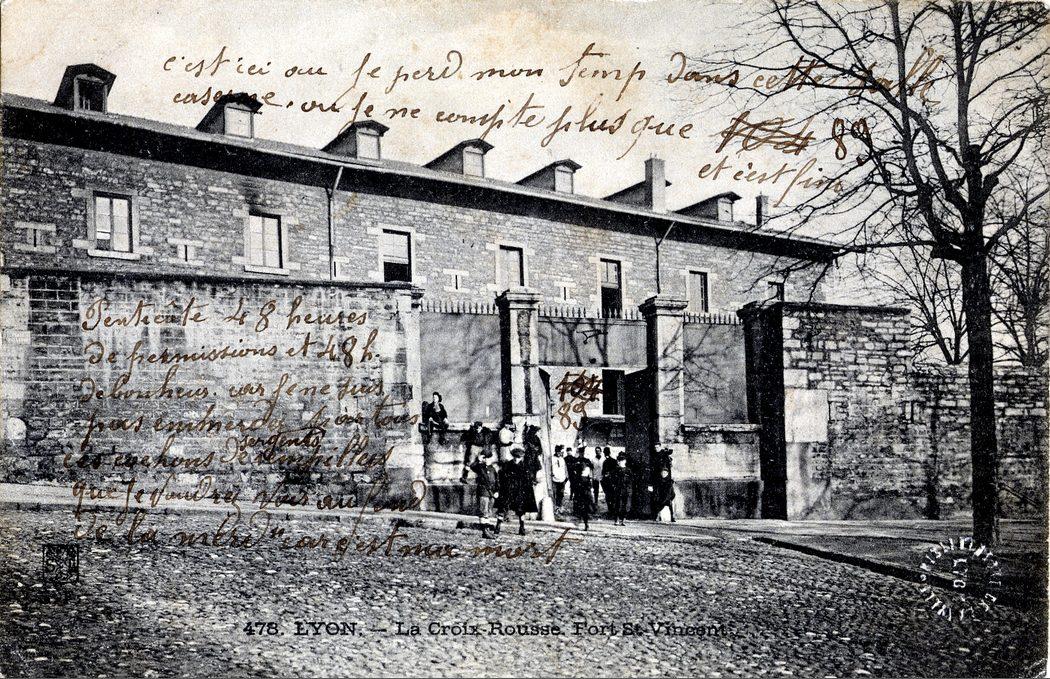 c'est ici ou je perd mon temp dans cette salle
caserne. ou je ne compte plus que 104 89
et c'est fini
Pentecôte 48 heures
de permissions et 48 h.
de bonheur. car je ne suis
pas emmerdé par tous
ces cochons de
sergents
que je voudrez tous au fond
de la merd car c'est ma mort
104
89
478. LYON. — La Croix-Rousse. Fort St-Vincent.